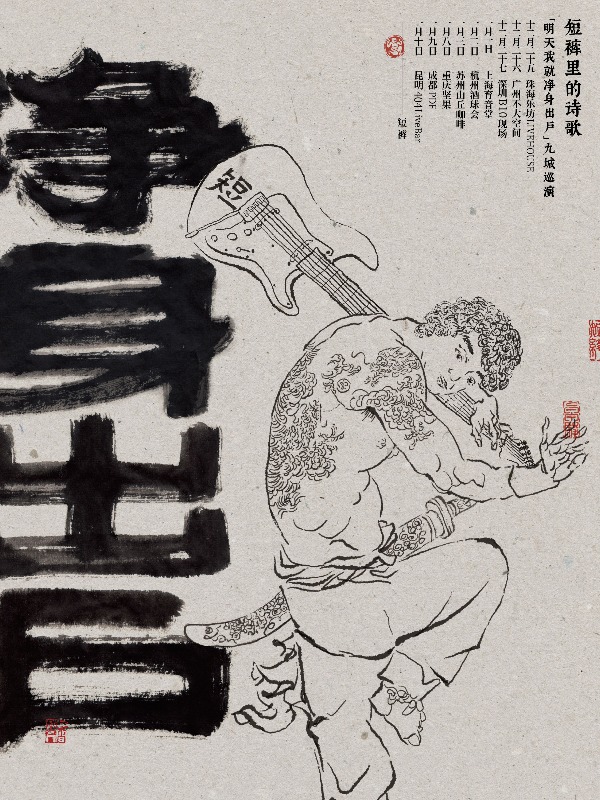 短裤里的诗歌
「明天我就净身出戶」九城巡演
十二月二十五 珠海乐坊LIVEHOUSE
十二月二十六 广州不大空间
十二月二十七 深圳B10现场
一月一日 上海育音堂
一月二日 杭州酒球会
一月三日 苏州山丘咖啡
一月八日 重庆坚果
一月九日 成都PDE
一月十日 昆明404 Live Bar
短裤
短
净身出戶